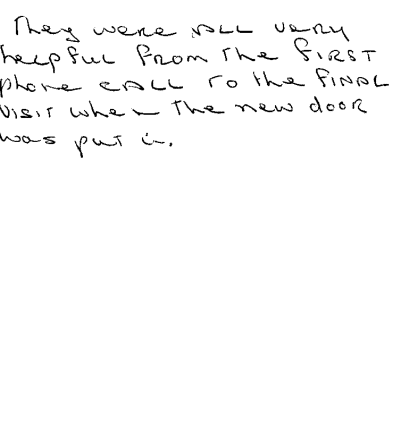 They were ALL very
helpful from the first
phone CALL to the final
visit when the new door
was put in.